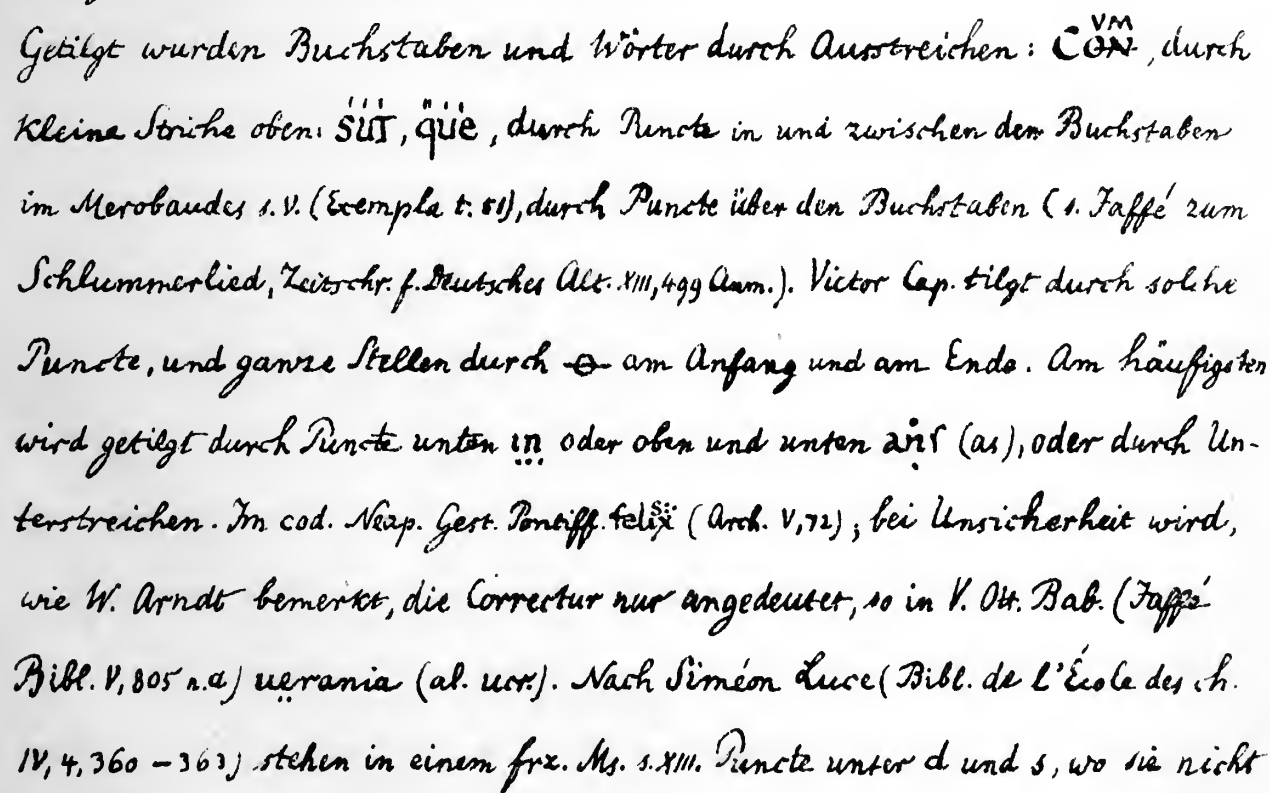 Getilgt wurden Buchstaben und Wörter durch Ausstreichen: CON VM, durch
kleine Striche oben: SUT, que, durch Puncte in und zwischen den Buchstaben
im Merobaudes s. V. (Exempla t. 51), durch Puncte über den Buchstaben (s. Jaffé zum
Schlummerlied, Zeitschr. f. Deutsches Alt. XIII, 499 Anm.). Victor Cap. tilgt durch solche
Puncte, und ganze Stellen durch ɵ am Anfang und am Ende. Am häufigsten
wird getilgt durch Puncte unten in oder oben und unten anſ (as), oder durch Un-
terstreichen. Im cod. Neap. Gest. Pontiff. felix (Arch. V, 72); bei Unsicherheit wird,
wie W. Arndt bemerkt, die Correctur nur angedeutet, so in V. Ott. Bab. (Jaffé
Bibl. V, 805 n. a) uerania (al. ucr.). Nach Siméon Luce (Bibl. de l'École des ch.
IV, 4, 360 – 363) stehen in einem frz. Ms. s. XIII. Puncte unter d und s, wo sie nicht